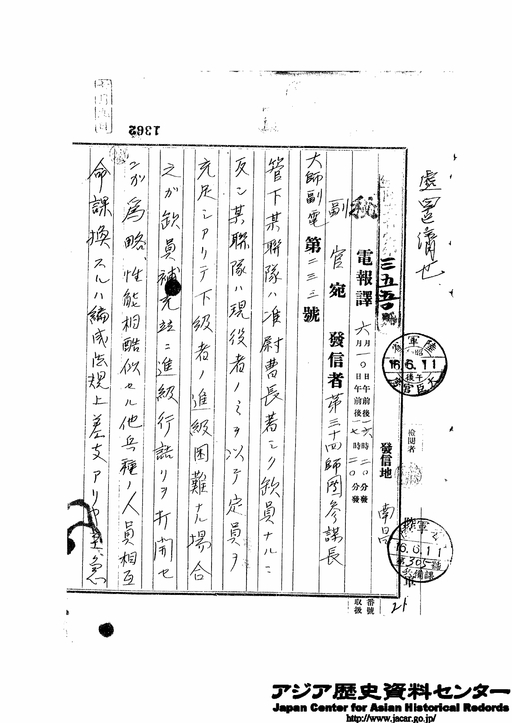 處置濟也
秘
三五五〇
電報譯
六月一〇日午前後一六時二〇分發
月日午前後一七時二〇分發
發信地 南昌
檢閲者
陸軍
16.6.11
16.6.11
第305號
副官宛 發信者 第三十四師團參謀長
大師副電 第二三三號
管下某聯隊ハ准尉曹長著シク缺員ナルニ
反シ某聯隊ハ現役者ノミヲ以テ定員ヲ
充足シアリテ下級者ノ進級困難ナル場合
之ガ缺員補充並ニ進級行詰リヲ打開セ
ンガ爲略性能相酷似セル他兵種ノ人員相互
命課換スルハ編成法規上差支アリヤ至急
番號
取扱
21
1362
アジア歴史資料センター
Japan Center for Asian Historical Records
http://www.jacar.go.jp/